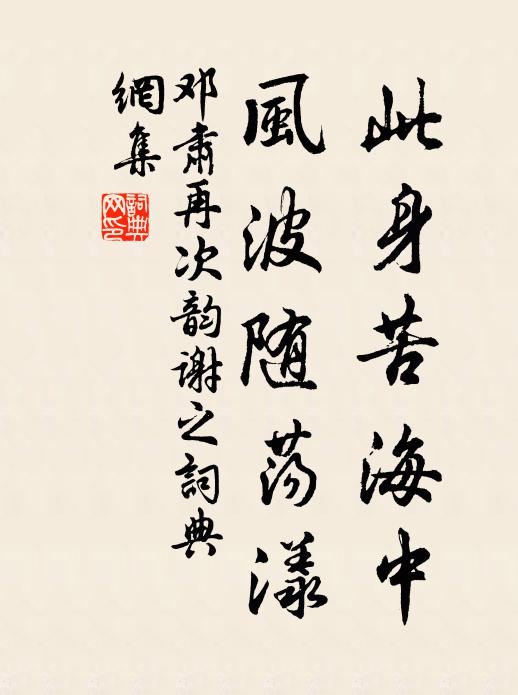 此身苦海中
風波随荡漾
邓肃再次韵谢之詞典
網集
詞典
网印